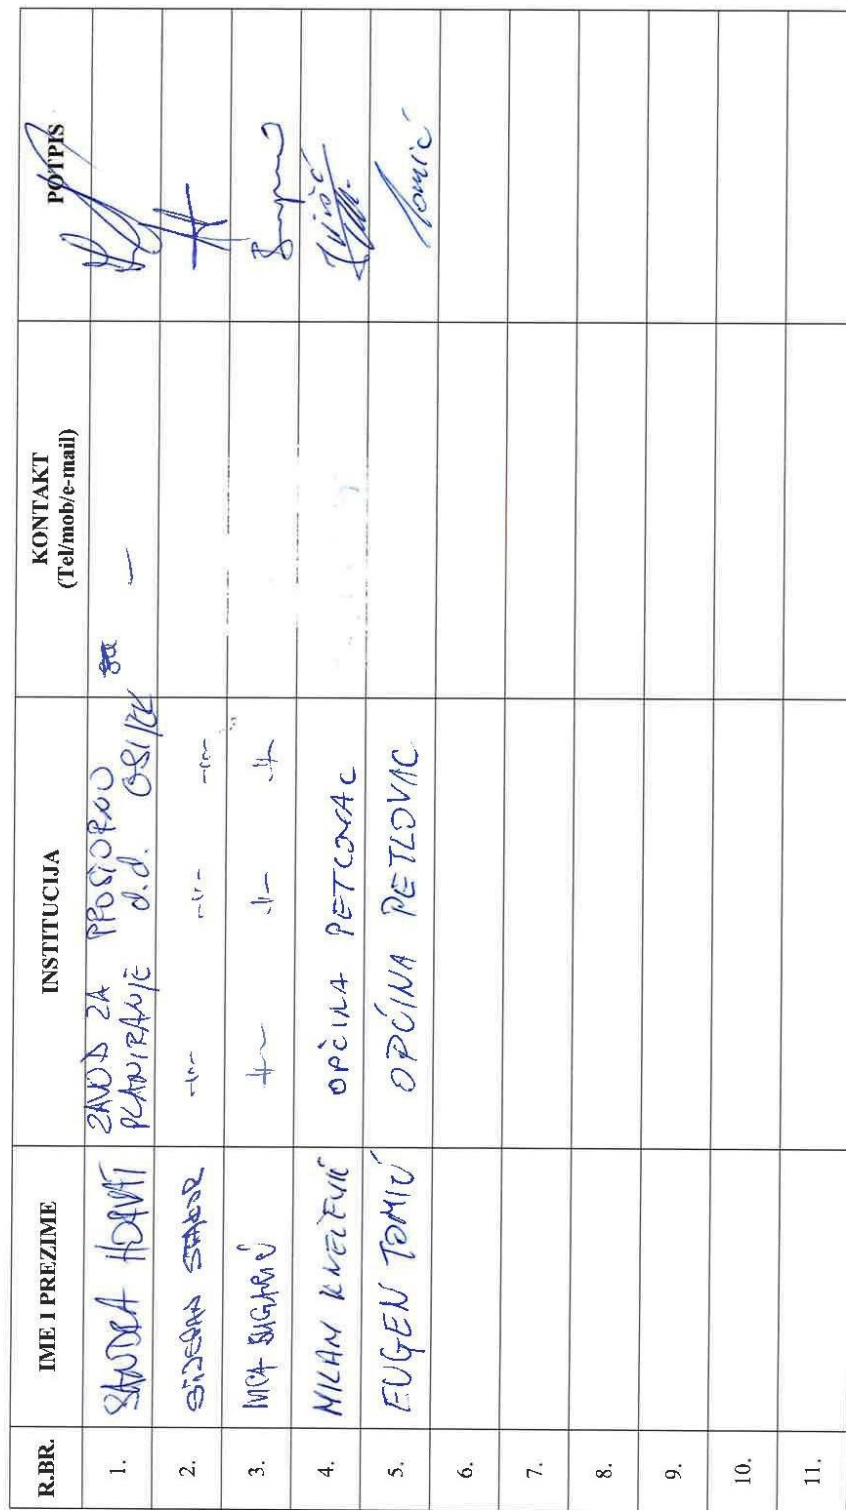 R.BR. IME I PREZIME INSTITUCIJA KONTAKT (Tel/mob/e-mail) POTPIS
1. SANDRA HORVAT ZAVOD ZA PROSTORNO
PLANIRANJE d.d. OSIJEK —
2. STJEPAN -ıı- -ıı- -ıı-
3. BUGARIĆ -ıı- -ıı- -ıı-
4. MILAN KNEŽEVIĆ OPĆINA PETLOVAC
5. EUGEN TOMIĆ OPĆINA PETLOVAC Tomić
6.
7.
8.
9.
10.
11.